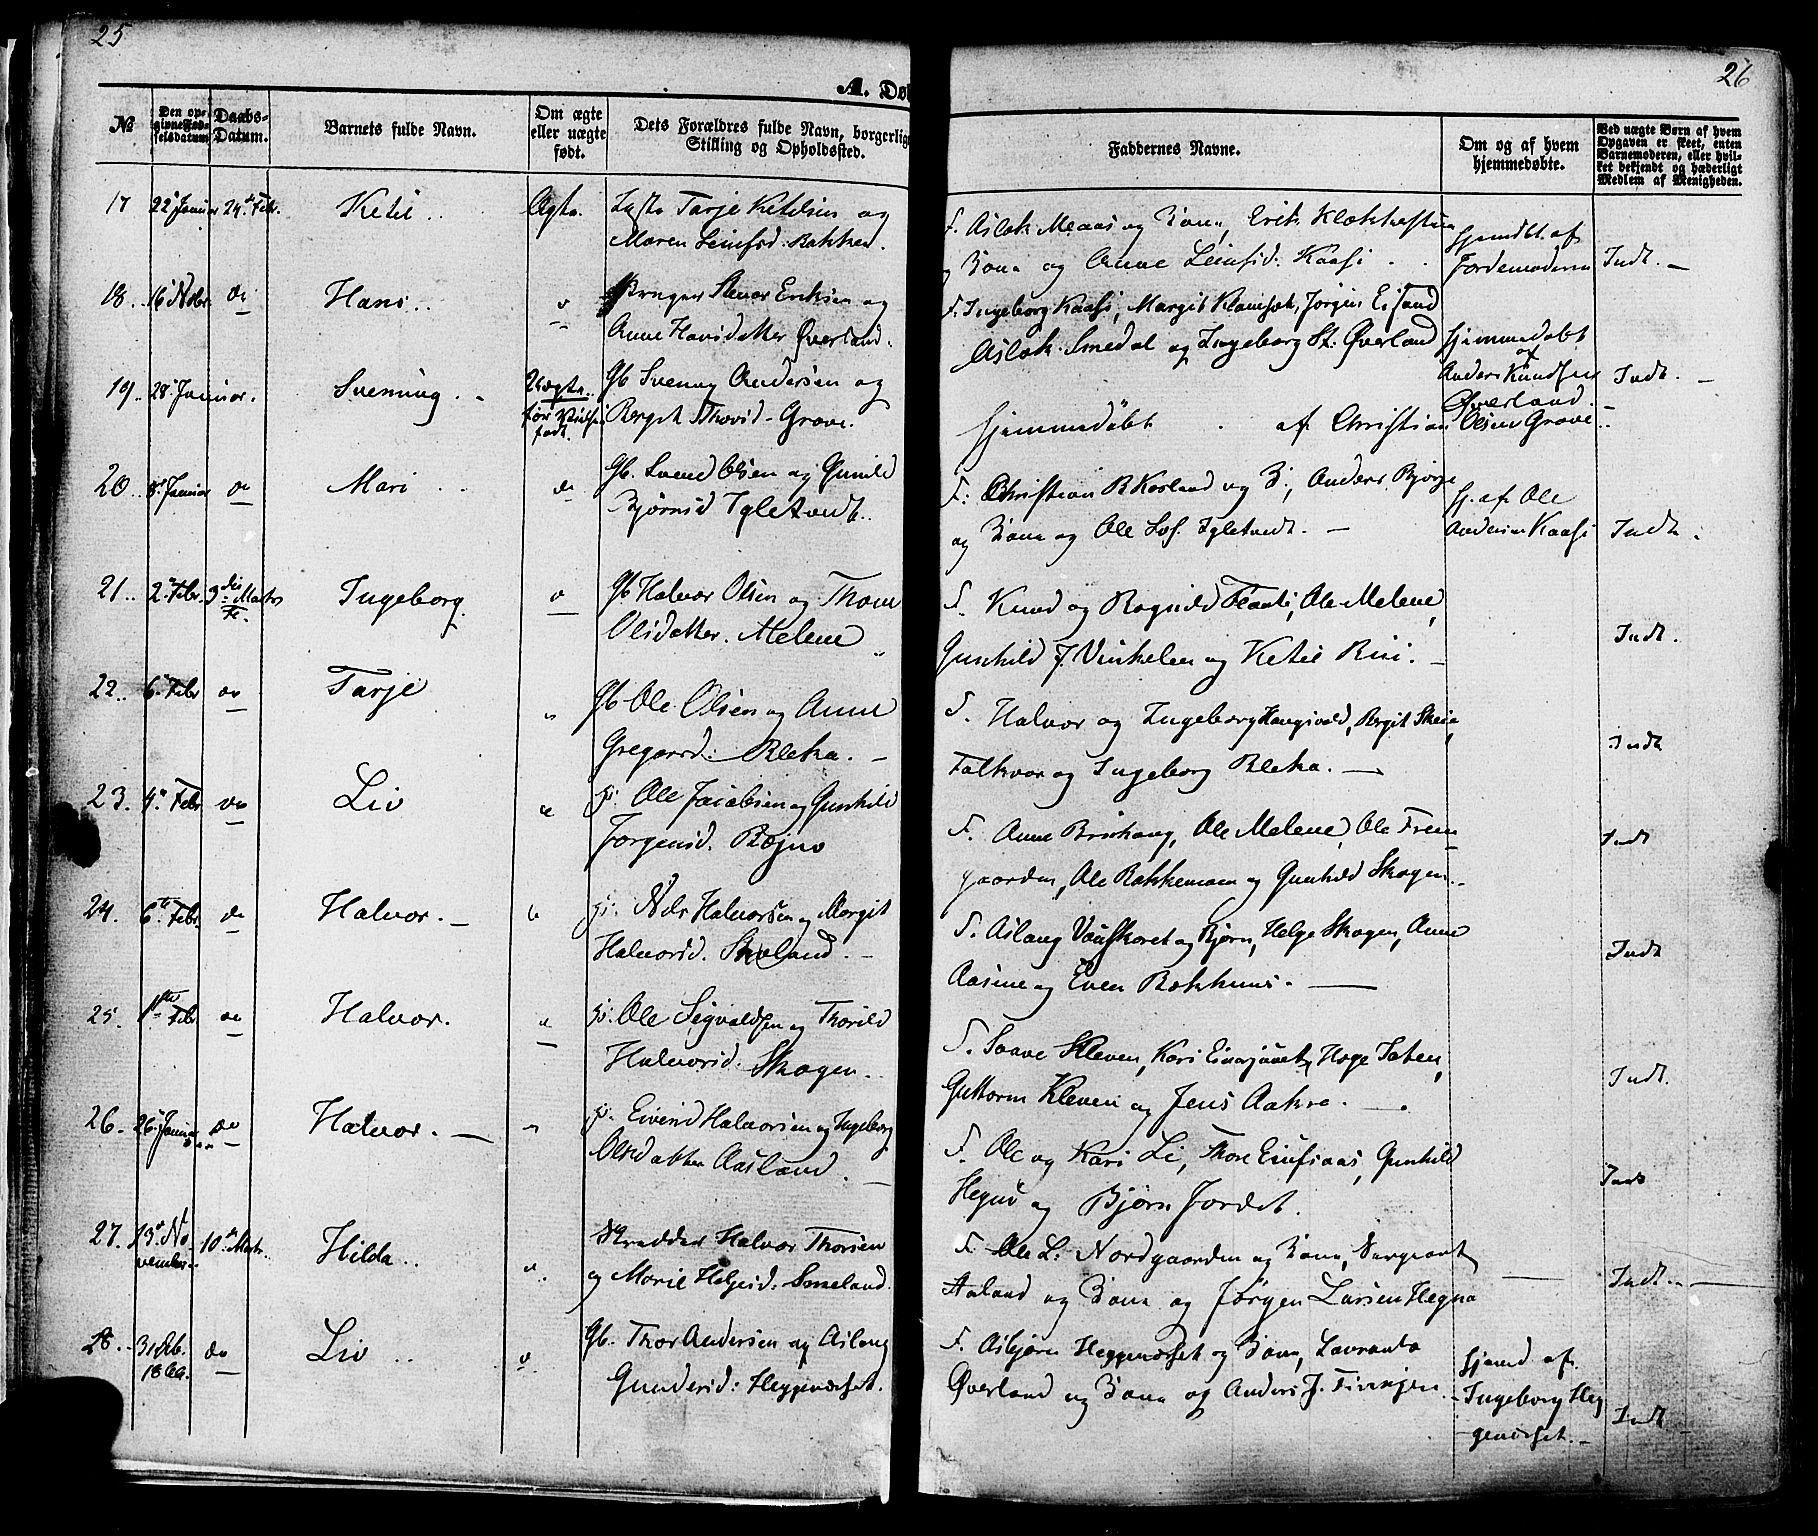 25
26
A. Døb
№
Den op-
givne Fød-
selsdatum
Daabs-
Datum.
Barnets fulde Navn.
Om ægte
eller uægte
født.
Dets Forældres fulde Navn, borgerlig
Stilling og Opholdssted.
Faddernes Navne.
Om og af hvem
hjemmedøbte.
Ved uægte Børn af hvem
Opgaven er skeet, enten
Barnemoderen, eller hvil-
ket bekjendt og hæderligt
Medlem af Menigheden.
17 22 Januar 24de Febr. Ketil Ægte. Tarje Ketilsen og
Maren Leinfsd: Bakken.
F. Aslak Meaas og Kona, Erik
og Kona og Anne Leinfsd. Kaasi
Hjemdbt. af
Jordemoderen Indt.
18 16 Nobr do Hans Bruger Stenor Eriksen og
Anne Hansdatter Øverland.
F. Ingeborg Kaasi, Margit Jørgen
Aslak Smedal og Ingeborg St. Øverland
Hjemmedøbt
af
Anders Knudsen
Øverland. Indt.
19 28 Januar. Svenning Uægte
før
født.
Gb Svenung Andersen og
Bergit Thovsd. Grave.
Hjemmedøbt af Christian Olsen Grave
20 8 Januar do Mari do Gb. Svend Olsen og Gunild
Bjørnsd Igletvedt.
F: Christian B Kosland og K, Anders Bjørge
og Kona og Ole Sof. Igletvedt.
Hj. af Ole
Andersen Kaasi Indt.
21 2 Febr. 3die Marts Ingeborg Gb Halvor Olsen og Thone
Olsdatter. Melene
F. Knud og Ragnild Flaati, Ole Melene,
Gunhild J. Vinkelen og Ketil Rui. Indt.
22 6 Febr do Tarje Gb Ole Olsen og Anne
Gregarsd: Bleka.
F. Halvor og Ingeborg Haugsvald, Bergit Skeie,
Falkvor og Ingeborg Bleka. Indt
23. 4 Febr do Liv Ole Jacobsen og Gunhild
Jorgensd. Bøjno
F. Anne Brishaug, Ole Melene, Ole Frem-
gaarden, Ole Bakkemoen og Gunhild Skogen. Indt
24. 6te Febr. do Halvor. Nils Halvorsen og Margit
Halvorsd. Skeland.
F. Aslaug Vaaskoret og Bjørn, Helge Skogen, Anne
Aasine og Even Bakkhuus. Indt
25. 1ste Febr do Halvor. Ole Sigvaldsen og Thorild
Halvorsd. Skogen.
F. Saave Kleven, Kari Hoge Taten,
Guttorm Kleven og Jens Aakre. Indt.
26. 26 Januar do Halvor. Eivind Halvorsen og Ingeborg
Olsdatter Aasland.
F. Ole og Kari Li, Thore Gunhild
Hegna og Bjørn Jordet. Indt
27. 13 No-
vember 10de Marts. Hilda Skrædder Halvor Thorsen
og Marie Helgesd. Sneland.
F. Ole L. Nordgaarden og Kona, Sergeant
Aaland og Kona og Jørgen Larsen Hegna Indt.
28. 31 Oktb.
1869. do Liv Gb. Thor Andersen og Aslaug
Gundersd: Heggenæset.
F. Asbjørn Heggenæset og Kona, Lavrants
Øverland og Kona og Anders J.
Hjemd af
Ingeborg Heg-
genæset. Indt